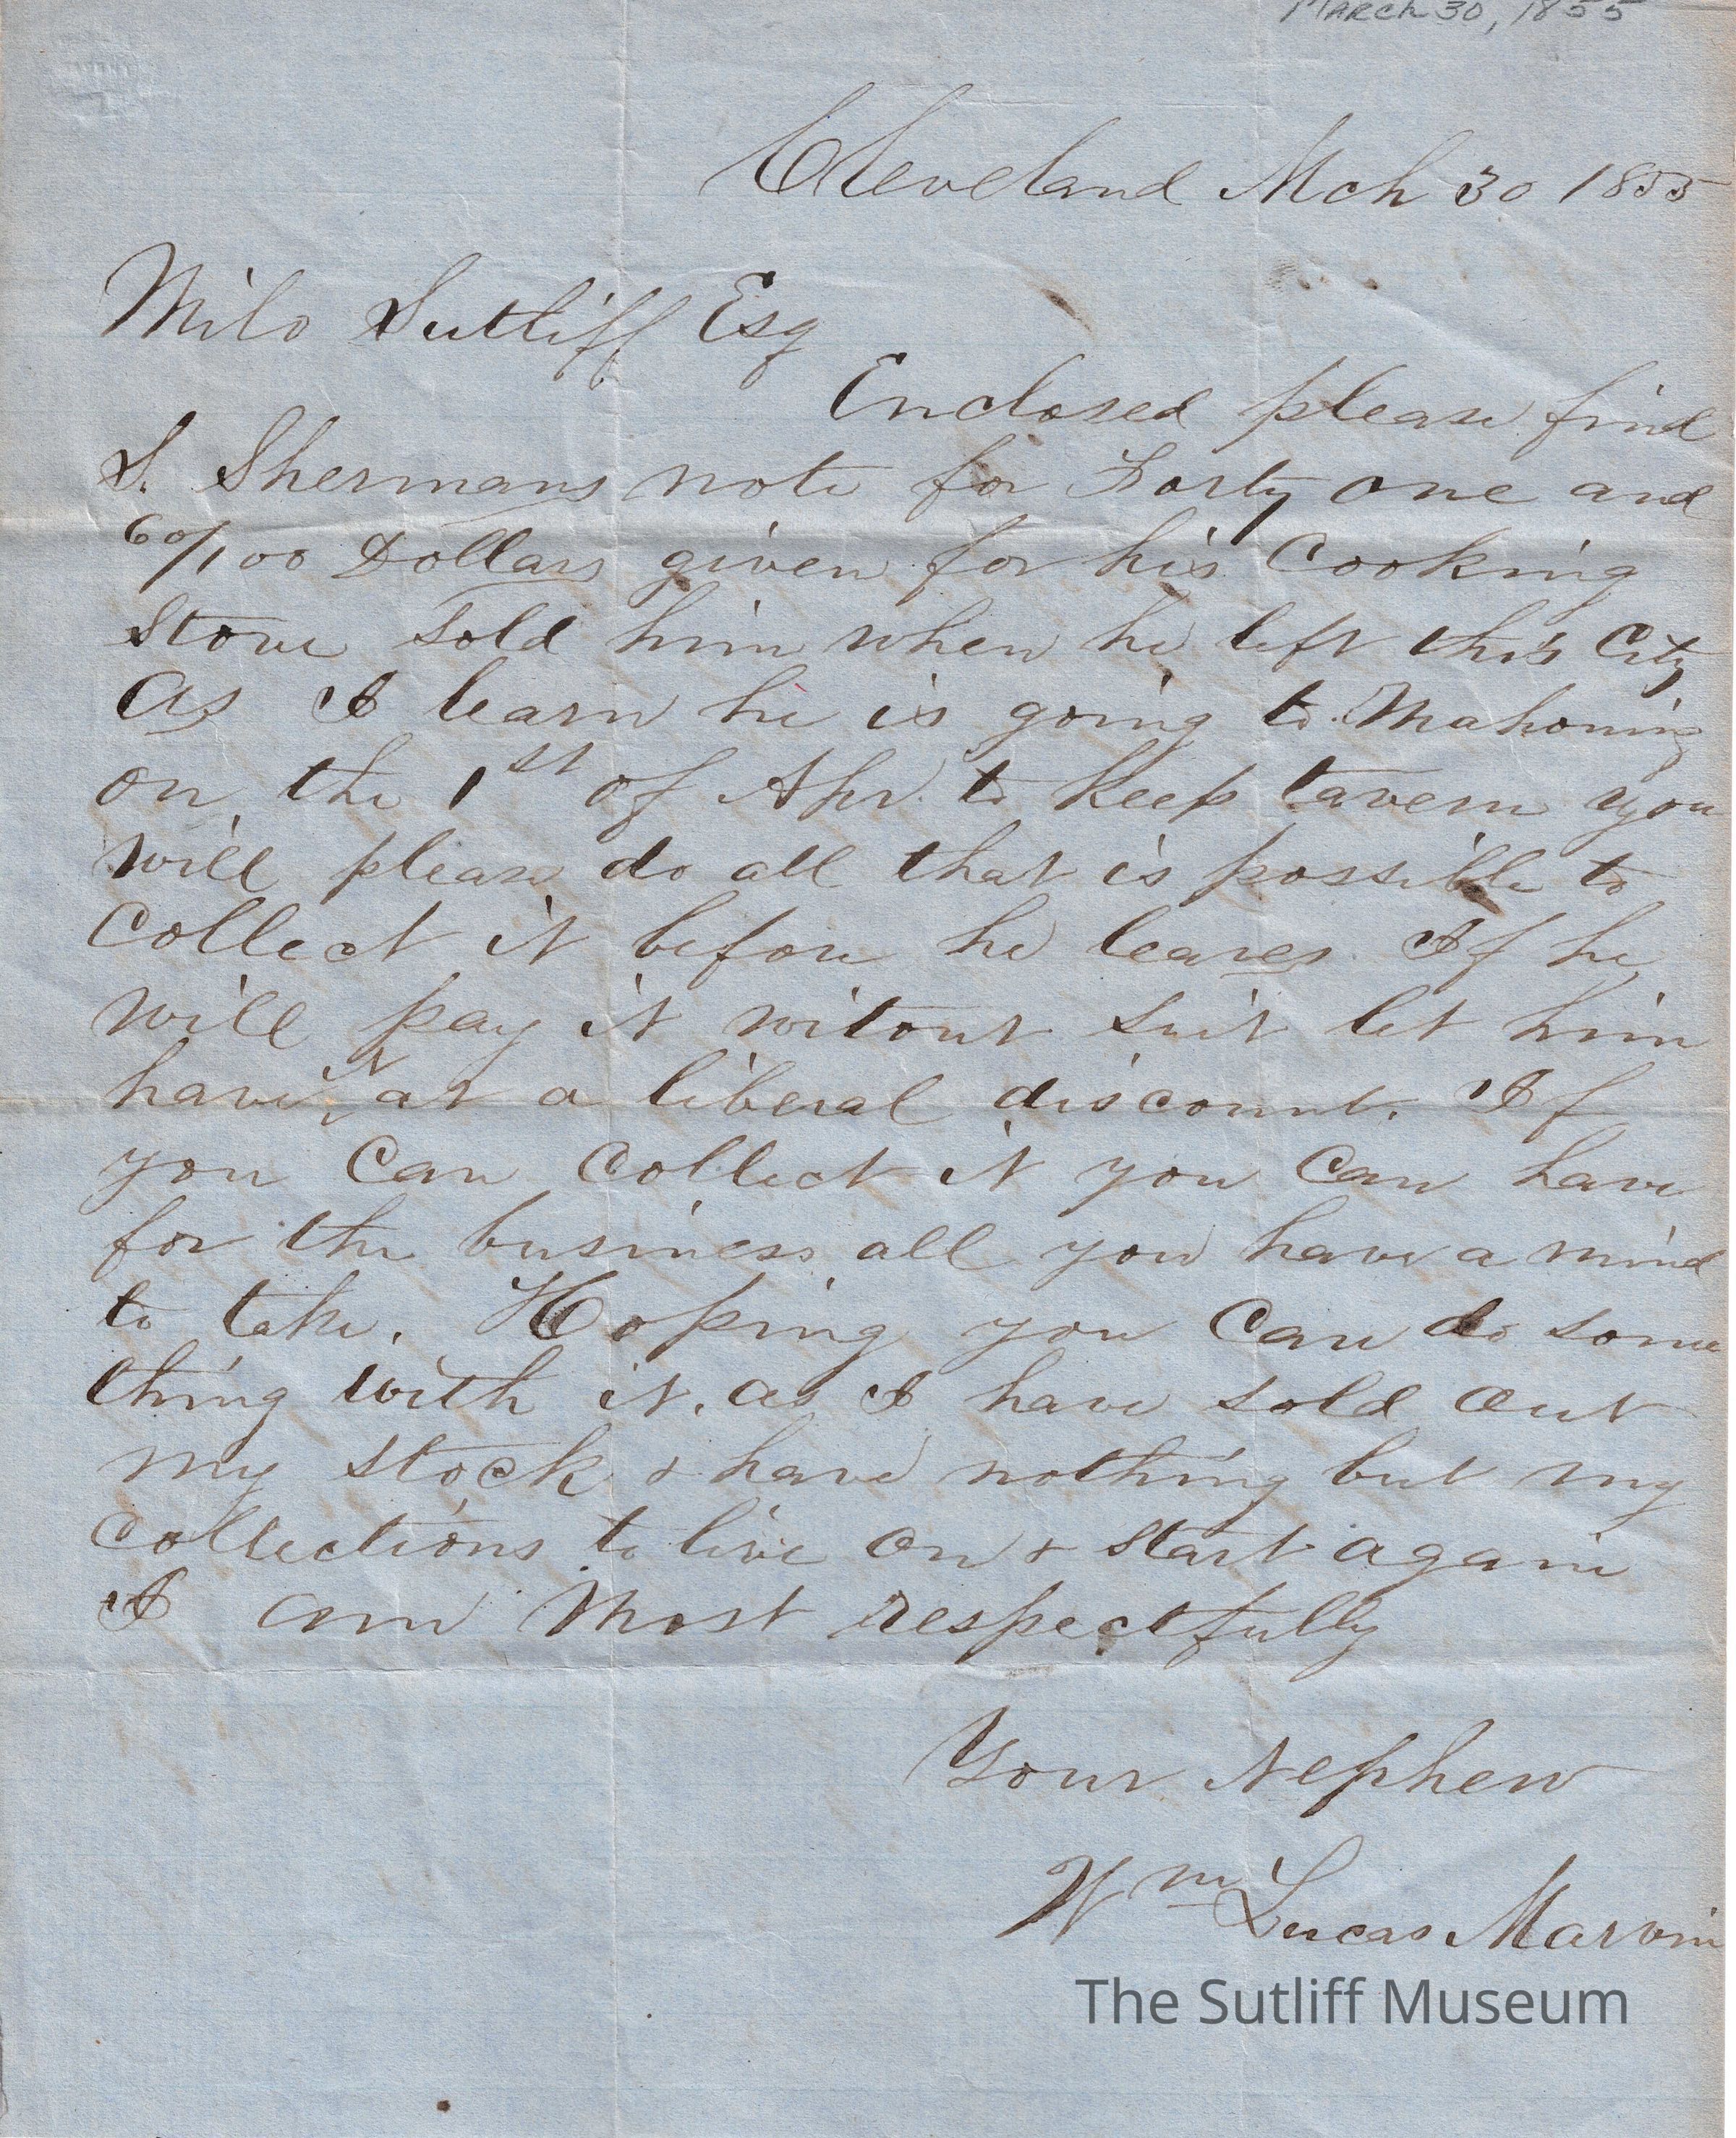 March 30, 1855
Cleveland Mch 30 1855
Milo Sutliff Esq
Enclosed please find
S. Shermans note for Forty one and
60/100 Dollars given for his Cooking
Stove sold him when he left this City
As I learn he is going to Mahoning
on the 1st of Apr. to keep tavern you
will please do all that is possible to
Collect it before he leaves. If he
will pay it witout suit let him
have it at a liberal discount. If
you Can Collect it you Can have
for the business all you have a mind
to take. Hoping you Can do some
thing with it. as I have sold out
my stock & have nothing but my
Collections to live on & start again
I am Most respectfully
Your Nephew
Wm Lucas Marvin
The Sutliff Museum